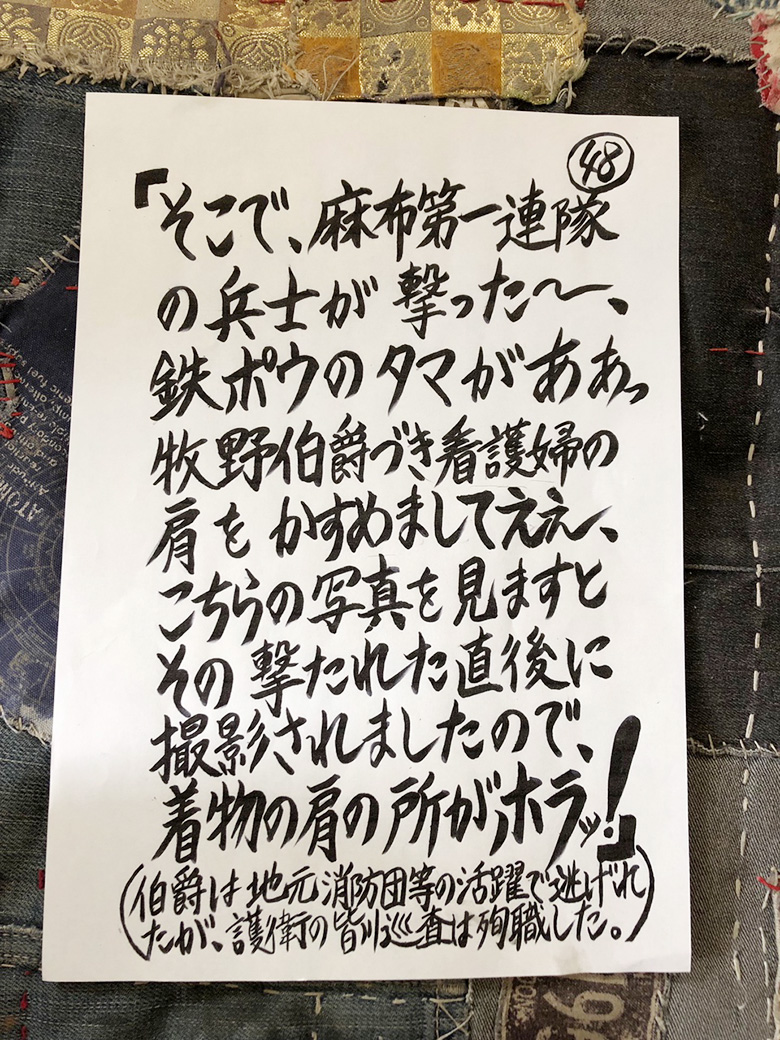 48
「そこで、麻布第一連隊
の兵士が撃った〜、
鉄ポウのタマがああっ
牧野伯爵づき看護婦の
肩をかすめましてええ〜、
こちらの写真を見ますと
その撃たれた直後に
撮影されましたので、
着物の肩の所が、ホラッ!」
(伯爵は地元消防団等の活躍で逃げれ
たが、護衛の皆川巡査は殉職した。)